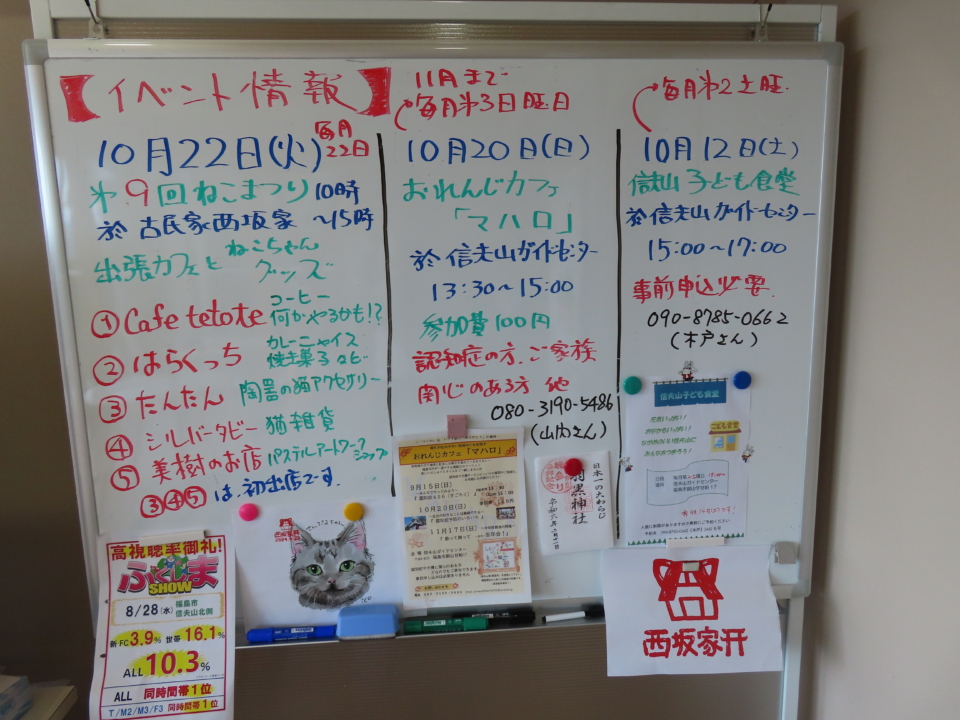 【イベント情報】
10月22日(火)
毎月
22日
第9回ねこまつり 10時
於 古民家西坂家 ～15時
出張カフェと ねこちゃん
グッズ
① Cafe tetote コーヒー
何かやるかも!?
② はらくっち カレーニャイス
焼き菓子など
③ たんたん 陶器の猫アクセサリー
④ シルバータビー 猫雑貨
⑤ 美樹のお店 パステルアートワーク
ショップ
③④⑤は、初出店です。
11月まで
毎月第3日曜日
10月20日(日)
おれんじカフェ
「マハロ」
於 信夫山ガイドセンター
13:30～15:00
参加費100円
認知症の方、ご家族
関心のある方 他
080-3190-5486
(山内さん)
毎月第2土曜
10月12日(土)
信夫山子ども食堂
於 信夫山ガイドセンター
15:00～17:00
事前申込必要
090-8785-0662
(木戸さん)
高視聴率御礼!
ふくしま
SHOW
8/28(水) 福島市
信夫山北側
新FC3.9% 世帯16.1%
ALL 10.3%
ALL 同時間帯1位
T/M2/M3/F3 同時間帯1位
おれんじカフェ「マハロ」
9月15日(日)
10月20日(日)
11月17日(日)
日本一の大わらじ
羽黒神社
信夫山子ども食堂
こども食堂
西坂家
西坂家开